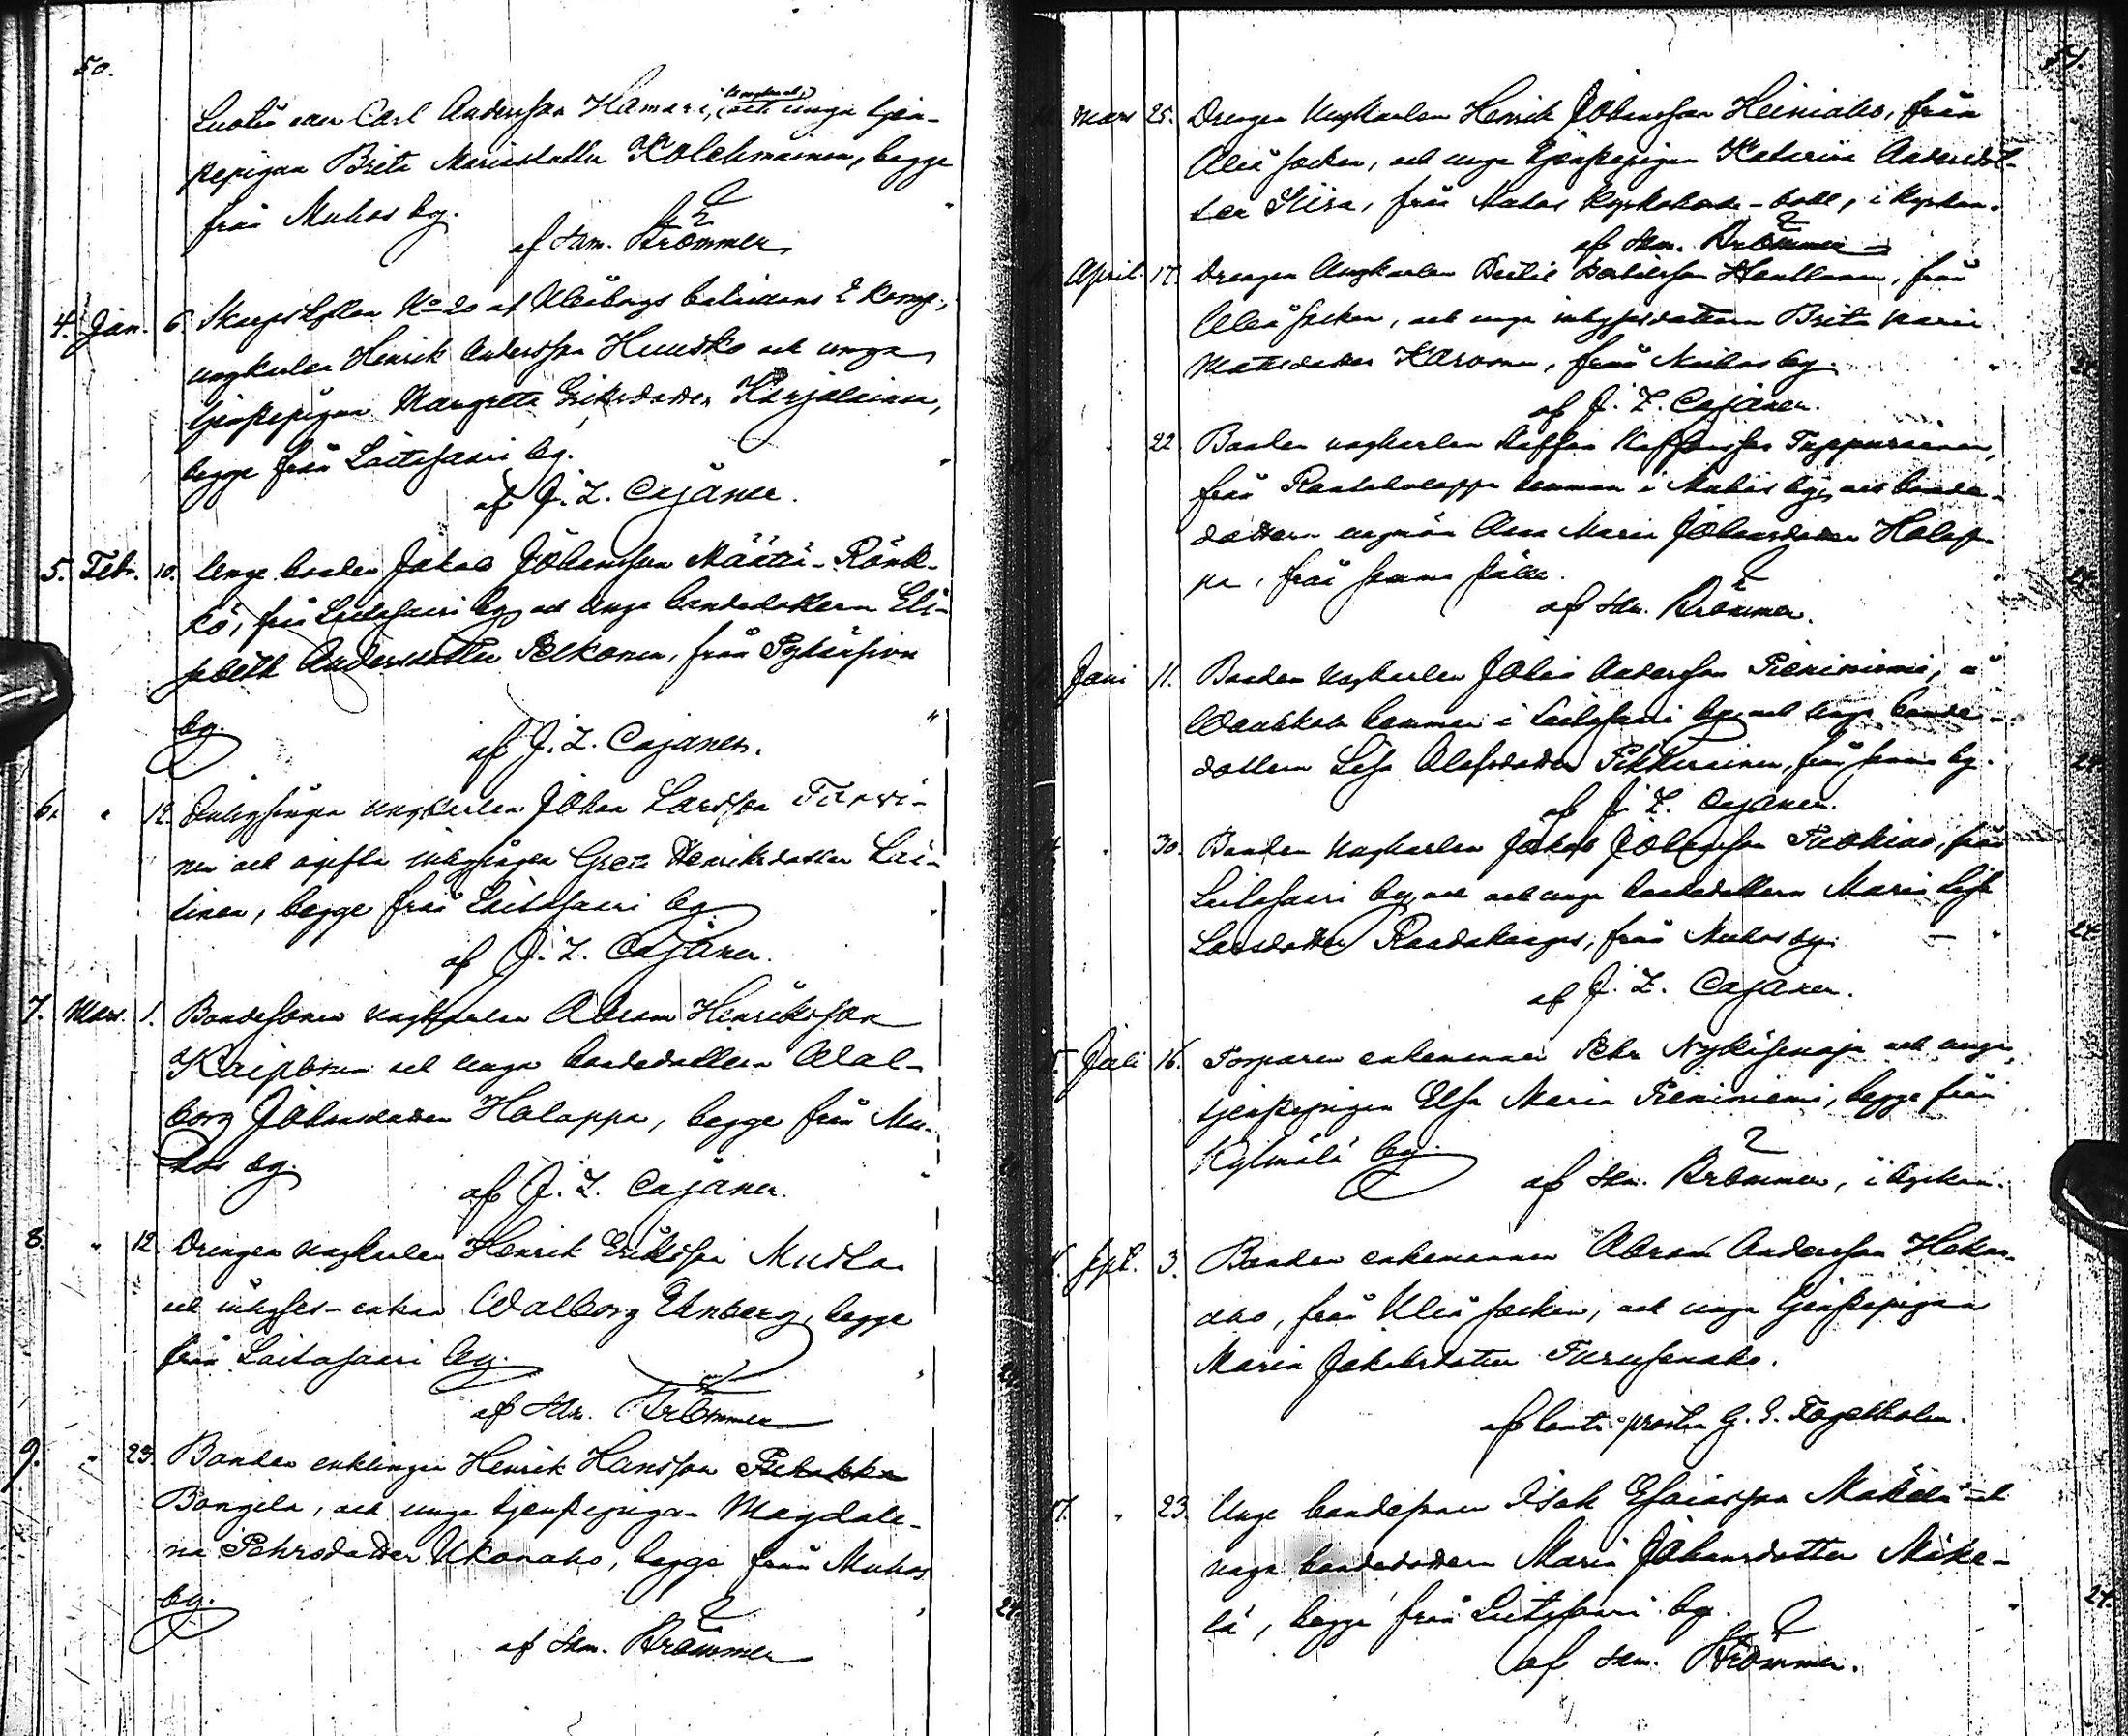 50.
Carl Andersson Hamari, (ungkarl) och unga tjen-
stepigan Brita Mariadotter Kolehmainen, begge
från Muhos by.
af Kom. Krömmer
4. Jan. 6. Skarpskytten No 20 af Uleåborgs bataillons 2 komp.,
ungkarlen Henrik Andersson Huusko och unga
tjenstepigan Margreta Eriksdotter Karjalainen,
begge från Laitasaari by. "
af J. Z. Cajaner.
5. Febr. 10. Unge bonden Jakob Johansson Määttä-Rönk-
kö, från Laitasaari by och unga bondedottern Eli-
sabeth Andersdotter Pelkonen, från Pyhänsivu
by. "
af J. Z. Cajaner.
6. " 12. Inhysingen ungkarlen Johan Larsson Turvi-
nen och ogifta inhysingen Greta Henriksdotter Lai-
tinen, begge från Laitasaari by. "
af J. Z. Cajaner.
7. Mars. 1. Bondesonen ungkarlen Abram Henriksson
och unga bondedottern Wal-
borg Johansdotter Holappa, begge från Mu-
hos by. "
af J. Z. Cajaner.
8. " 12. Drengen ungkarlen Henrik Eriksson Musta
och inhyses-enkan Walborg Enberg, begge
från Laitasaari by. "
af Kom. Krömmer
9. " 23. Bonden enklingen Henrik Hansson
Bongela, och unga tjenstepigan Magdale-
na Pehrsdotter Ukonaho, begge från Muhos
by. " 24.
af Kom. Krömmer
51.
Mars 25. Drengen Ungkarlen Henrik Johansson Heiniaho, från
Uleå socken, och unga tjenstepigan Katarina Andersdot-
ter Kiisa, från Muhos i kyrkan.
af Kom. Krömmer
April. 17. Drengen Ungkarlen Bertil Bertilsson Henttunen, från
Uleå socken, och unga inhysesdottern Brita Maria
Matsdotter Karvonen, från Muhos by. " 24.
af J. Z. Cajaner.
" 22. Bonden ungkarlen Staffan Staffansson Tuppurainen,
från hemman i Muhos by, och bonde-
dottern ungmön Anna Maria Johansdotter Holap-
pa, från samma ställe. " 24.
af Kom. Krömmer.
Juni 11. Bonden ungkarlen Johan Andersson Pieniniemi, å
hemman i Laitasaari by och unga bonde-
dottern Lisa Olofsdotter Pikkarainen, från samma by. 24.
af J. Z. Cajaner.
" 30. Bonden ungkarlen Jakob Johansson från
Laitasaari by, och och unga bondedottern Maria Lisa
Larsdotter från Muhos by. — " 24.
af J. Z. Cajaner.
15. Juli 16. Torparen enkemannen Pehr och unga
tjenstepigan Elsa Maria Pieniniemi, begge från
Kylmälä by.
af Kom. Krömmer, i kyrkan.
Sept. 3. Bonden enkemannen Abram Andersson
aho, från Uleå socken, och unga tjenstepigan
Maria Jakobsdotter Turusenaho.
af Contr. prosten G. E. Fogelholm.
17. " 23. Unge bondesonen Isak Esaiasson Mäkelä och
unga bondedottern Maria Johansdotter Mäke-
lä, begge från Laitasaari by. " 24.
af Kom. Krömmer.